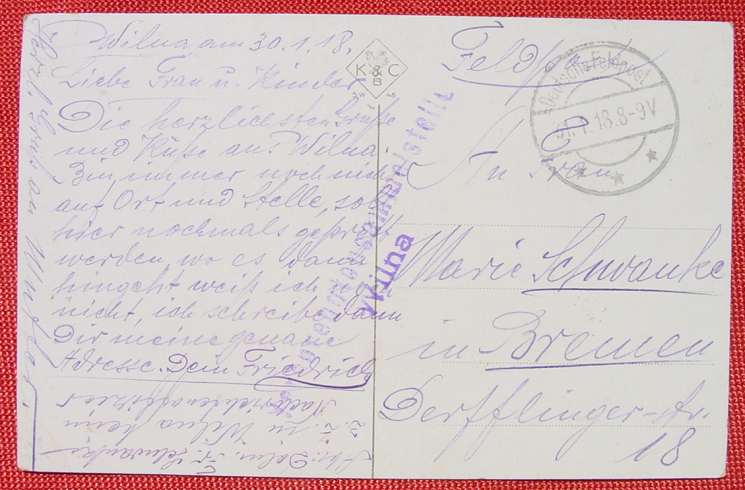 Wilna am 30.1.18.
Liebe Frau u. Kinder
Die herzlichsten Grüße
und Küße aus Wilna.
Bin immer noch nicht
auf Ort und Stelle, soll
hier nochmals geprüft
werden, wo es dann
hingeht weiß ich noch
nicht, ich schreibe dann
Dir meine genaue
Adresse. Dein Friedrich
z. Z. zu Wilna beim
Nachrichtenoffizier
K & C
B
Feldpost
Deutsche Feldpost
31. 1. 18. 8-9V
An Frau
Marie Schwanke
in Bremen
Derfflinger-Str.
18
Wilna